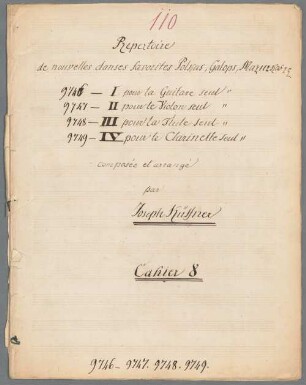 110
Repertoire
de nouvelles danses favorites Polkas, Galops,
9746 — I pour la Guitare seul "
9747 — II pour le Violon seul "
9748 — III pour la Flute seul "
9749 — IV pour le Clarinette seul "
composée et arrangé
par
Joseph Küffner
Cahier 8
9746 – 9747. 9748 – 9749.